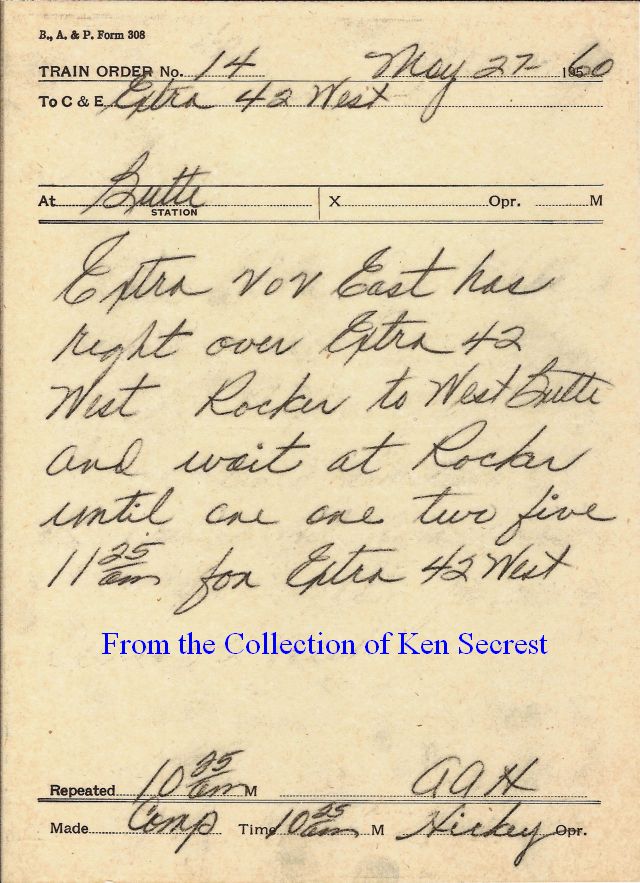 B., A. & P. Form 308
TRAIN ORDER No. 14 May 27- 1960
To C & E Extra 42 West
At Butte X Opr. M
STATION
Extra 202 East has
right over Extra 42
West Rocker to West Butte
and wait at Rocker
until one one two five
11 25 am for Extra 42 West
From the Collection of Ken Secrest
Repeated 10 25 am M G A H
Made Comp Time 10 25 am M Hickey Opr.